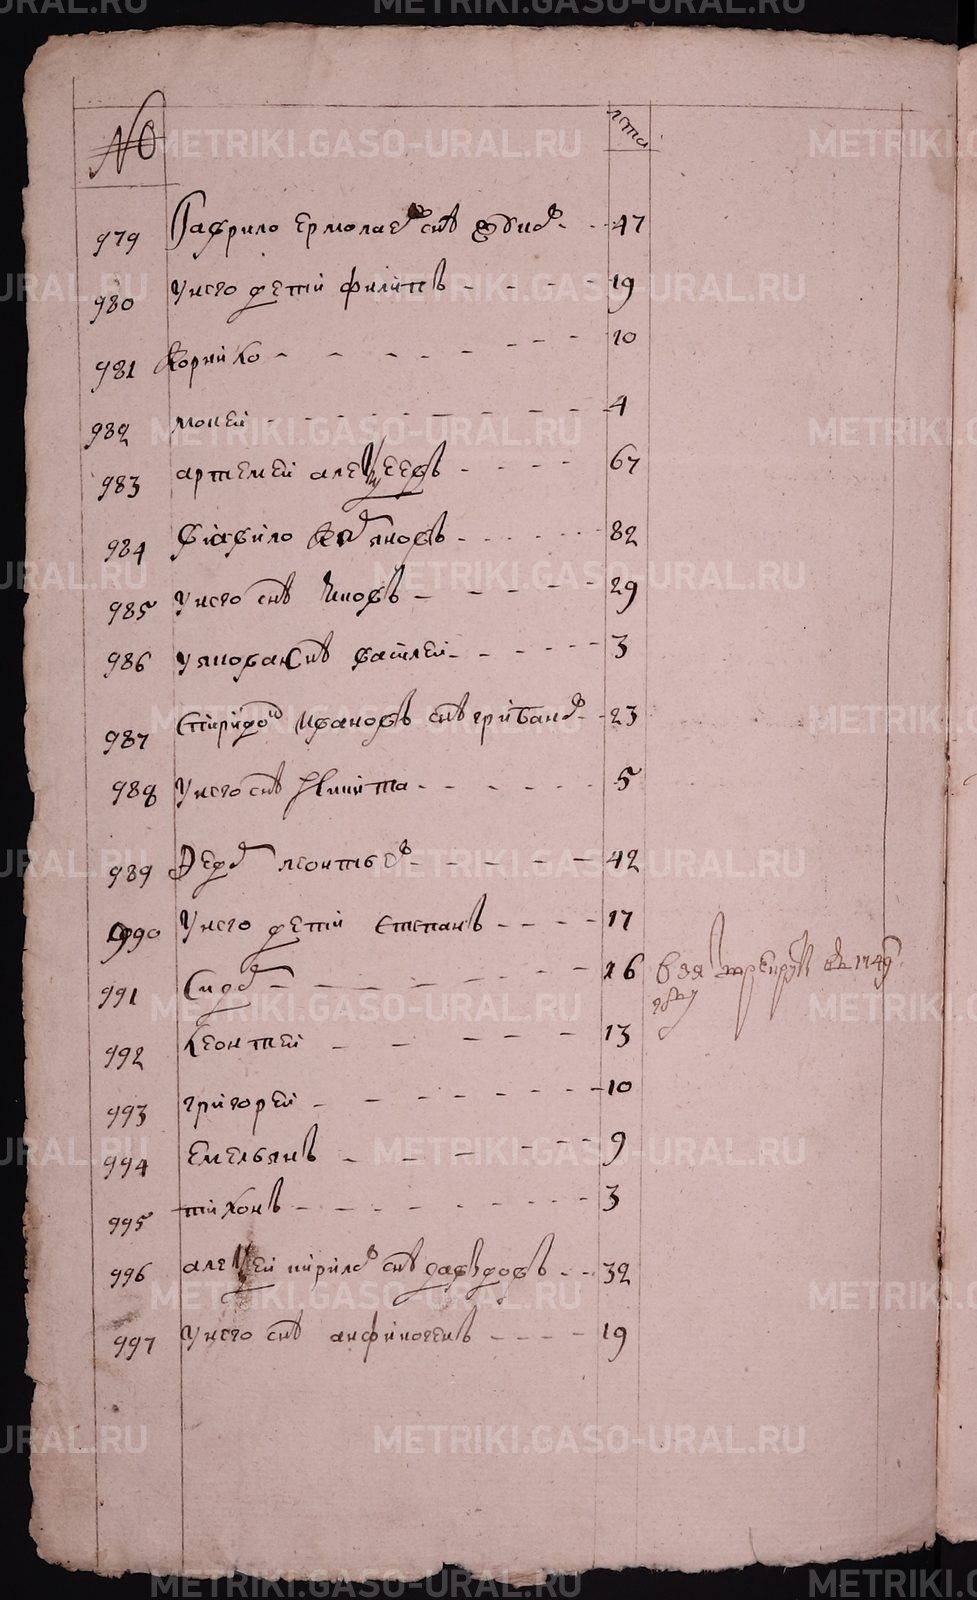 METRIKI.GASO-URAL.RU
№ лета
979 Гаврило Ермолаев снъ 47
980 У него детей филипъ 19
981 корнило 10
982 мокей 4
983 артемей алеѯеевъ 67
984 Гаврило 82
985 У него снъ Яковъ 29
986 У якова снъ василей 3
987 Спиридон Ивановъ снъ грибанов 23
988 У него снъ Никита 5
989 Федор леонтьев 42
990 У него детей степанъ 17
991 Сидор 16 взят в рекруты в 1749
году
992 Леонтей 13
993 григорей 10
994 емельянъ 9
995 тихонъ 3
996 алеѯей кирилов снъ давыдовъ 32
997 У него снъ анфиногенъ 19